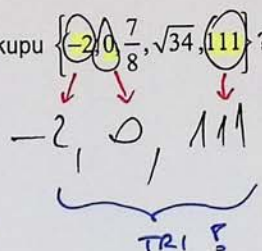 kupu {−2, 0, 7/8, √34, 111} ?
−2, 0, 111
TRI ?